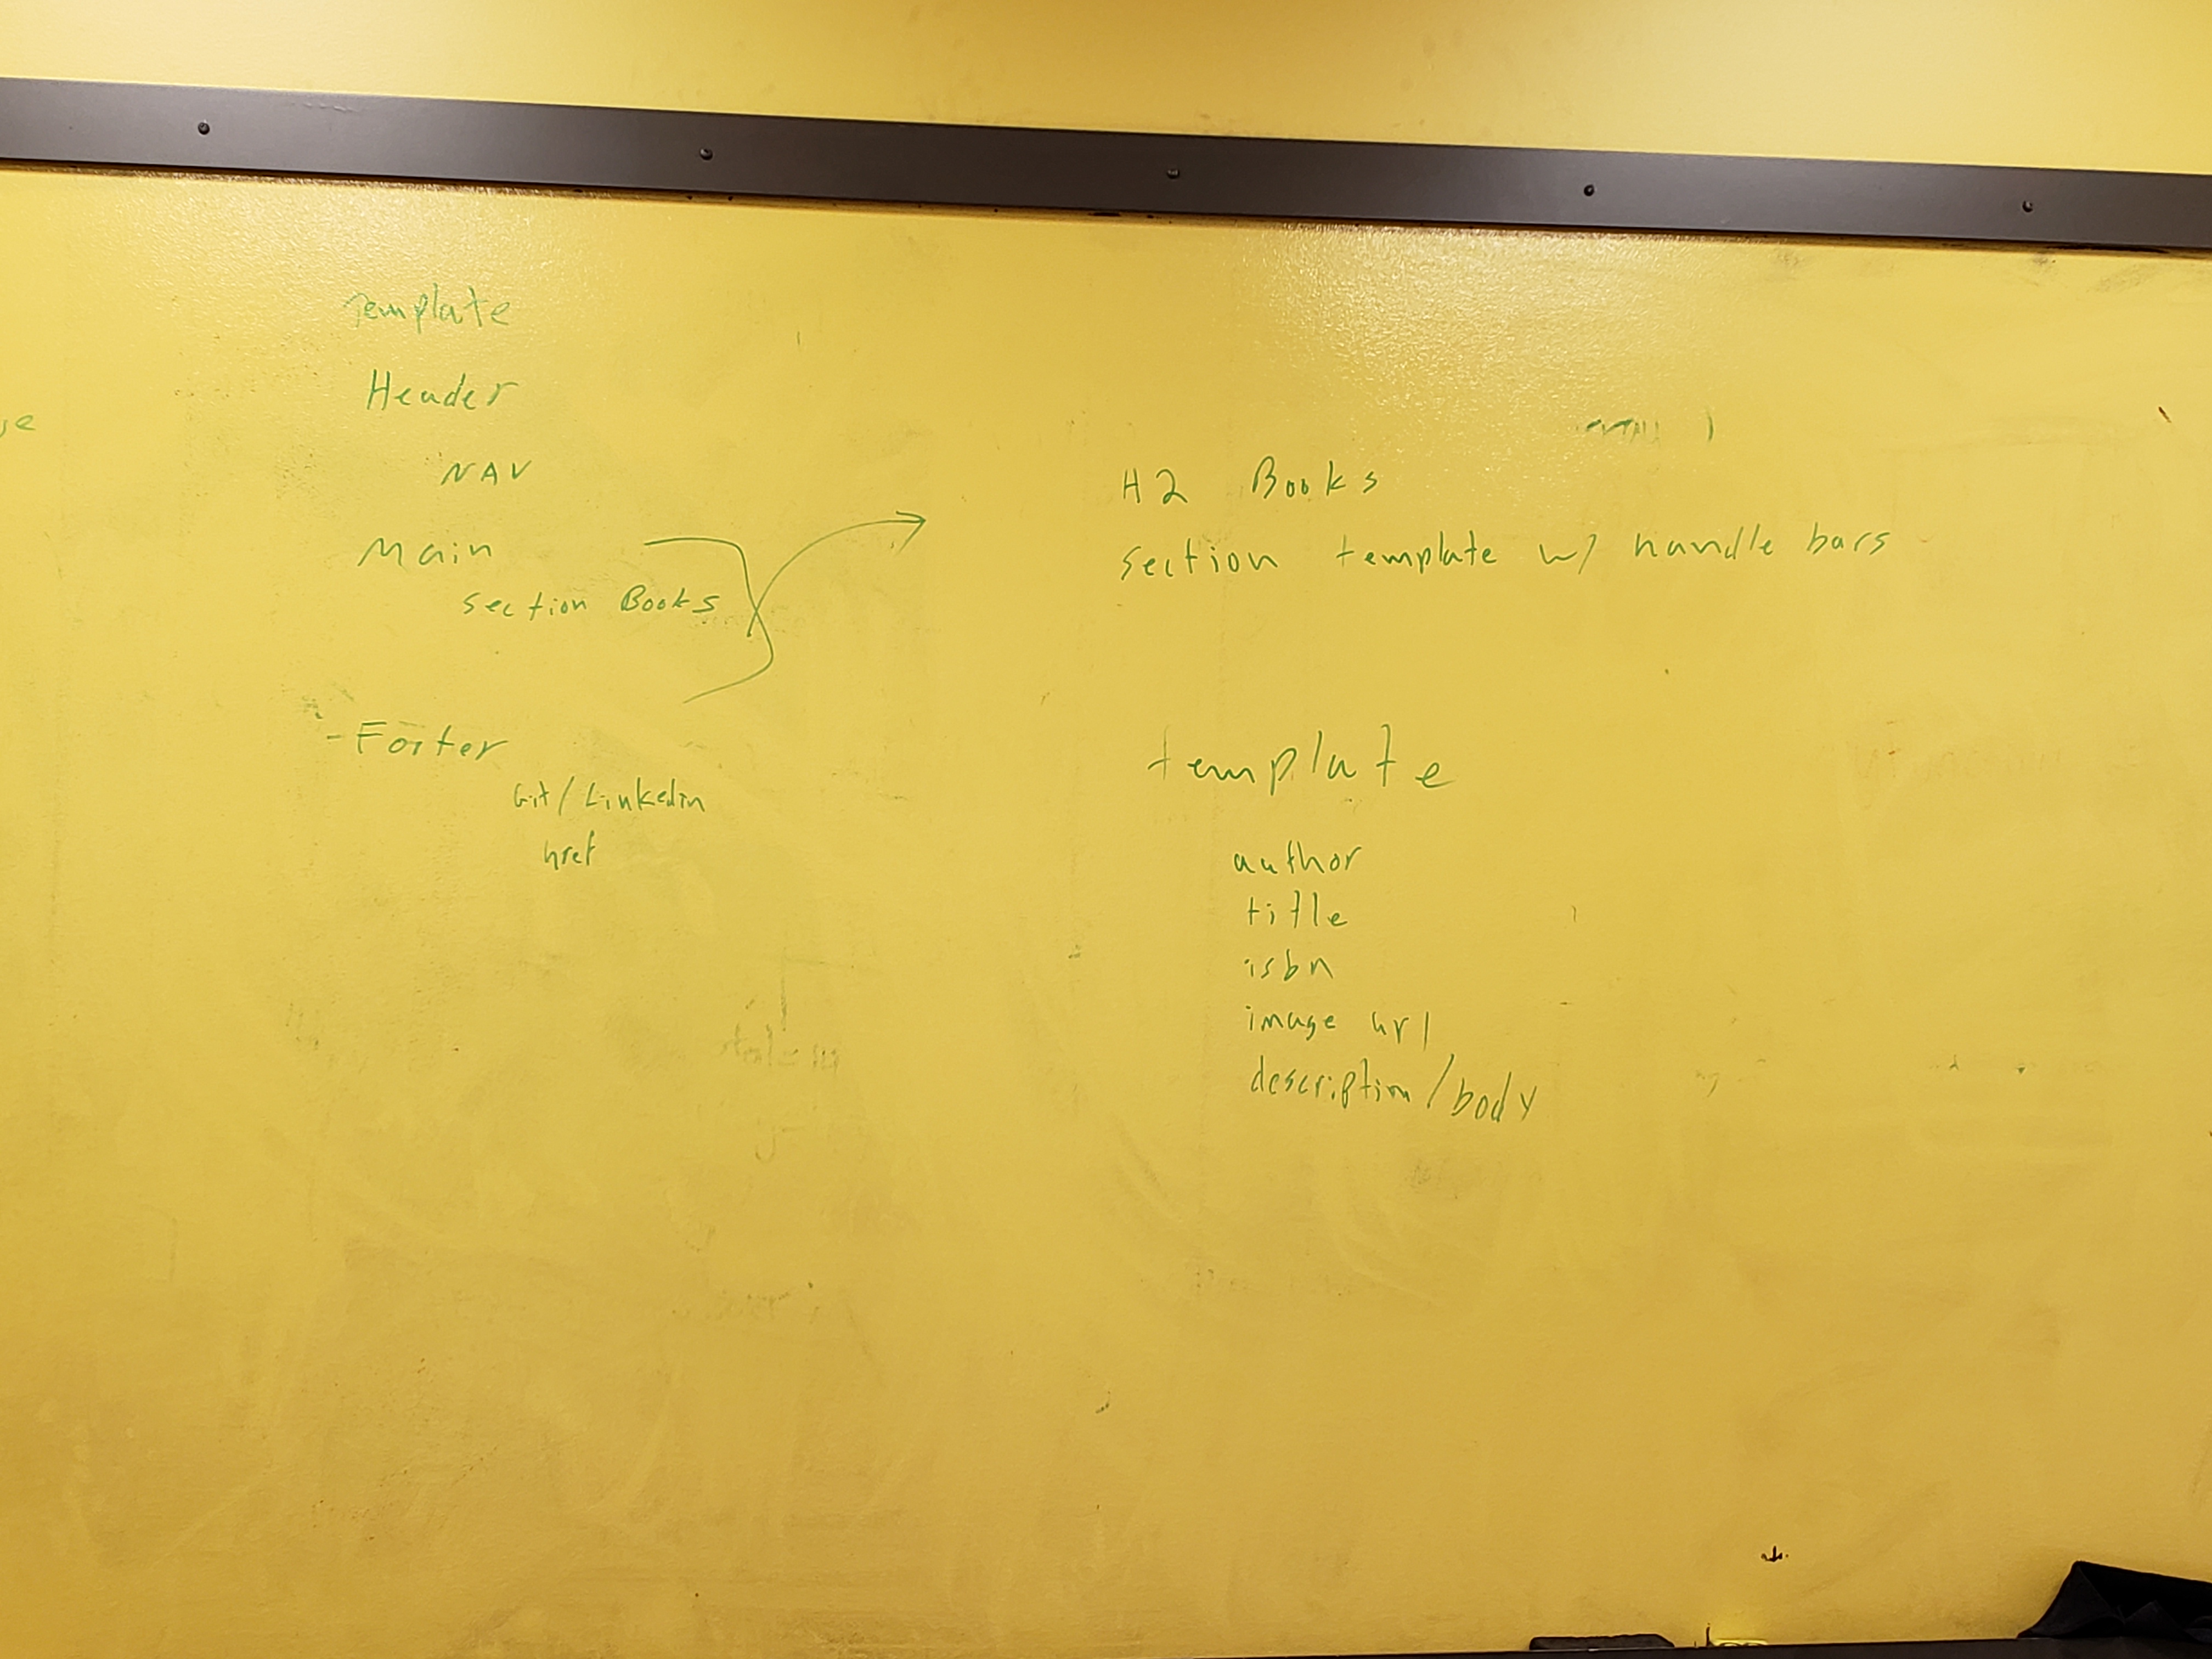 Template
Header
NAV
Main
section Books
- Footer
Git/Linkedin
href
H2 Books
section template w/ handle bars
template
author
title
isbn
image url
description/body